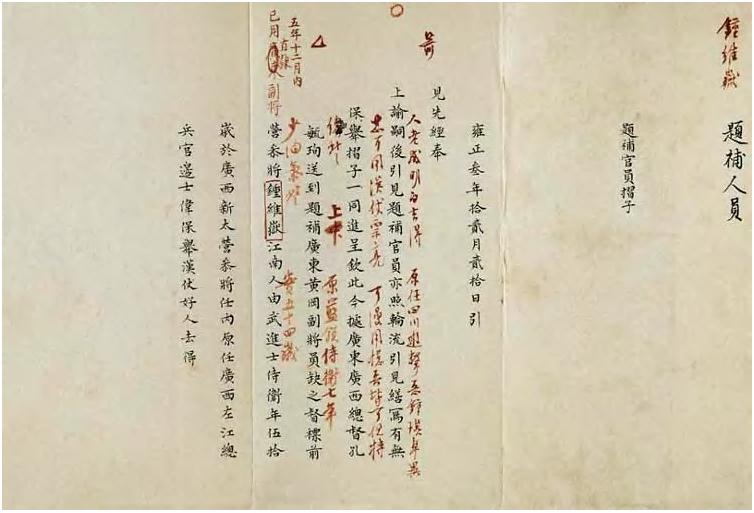 鍾維嶽
題補人員
題補官員摺子
雍正叁年拾貳月貳拾日引
見先經奉
人老成明白去得 原任四川遊擊
上諭嗣後引見題補官員亦照輪流引見繕寫有無
可用漢仗 亮
保舉摺子一同進呈欽此今據廣東廣西總督孔
上中 原藍翎侍衛七年
毓珣送到題補廣東黃岡副將員缺之督標前
少油氣些 實五十四歲
五年十二月內
直隸
已用 副將
營叅將鍾維嶽江南人由武進士侍衛年伍拾
歲於廣西新太營叅將任內原任廣西左江總
兵官邉士偉保舉漢仗好人去得